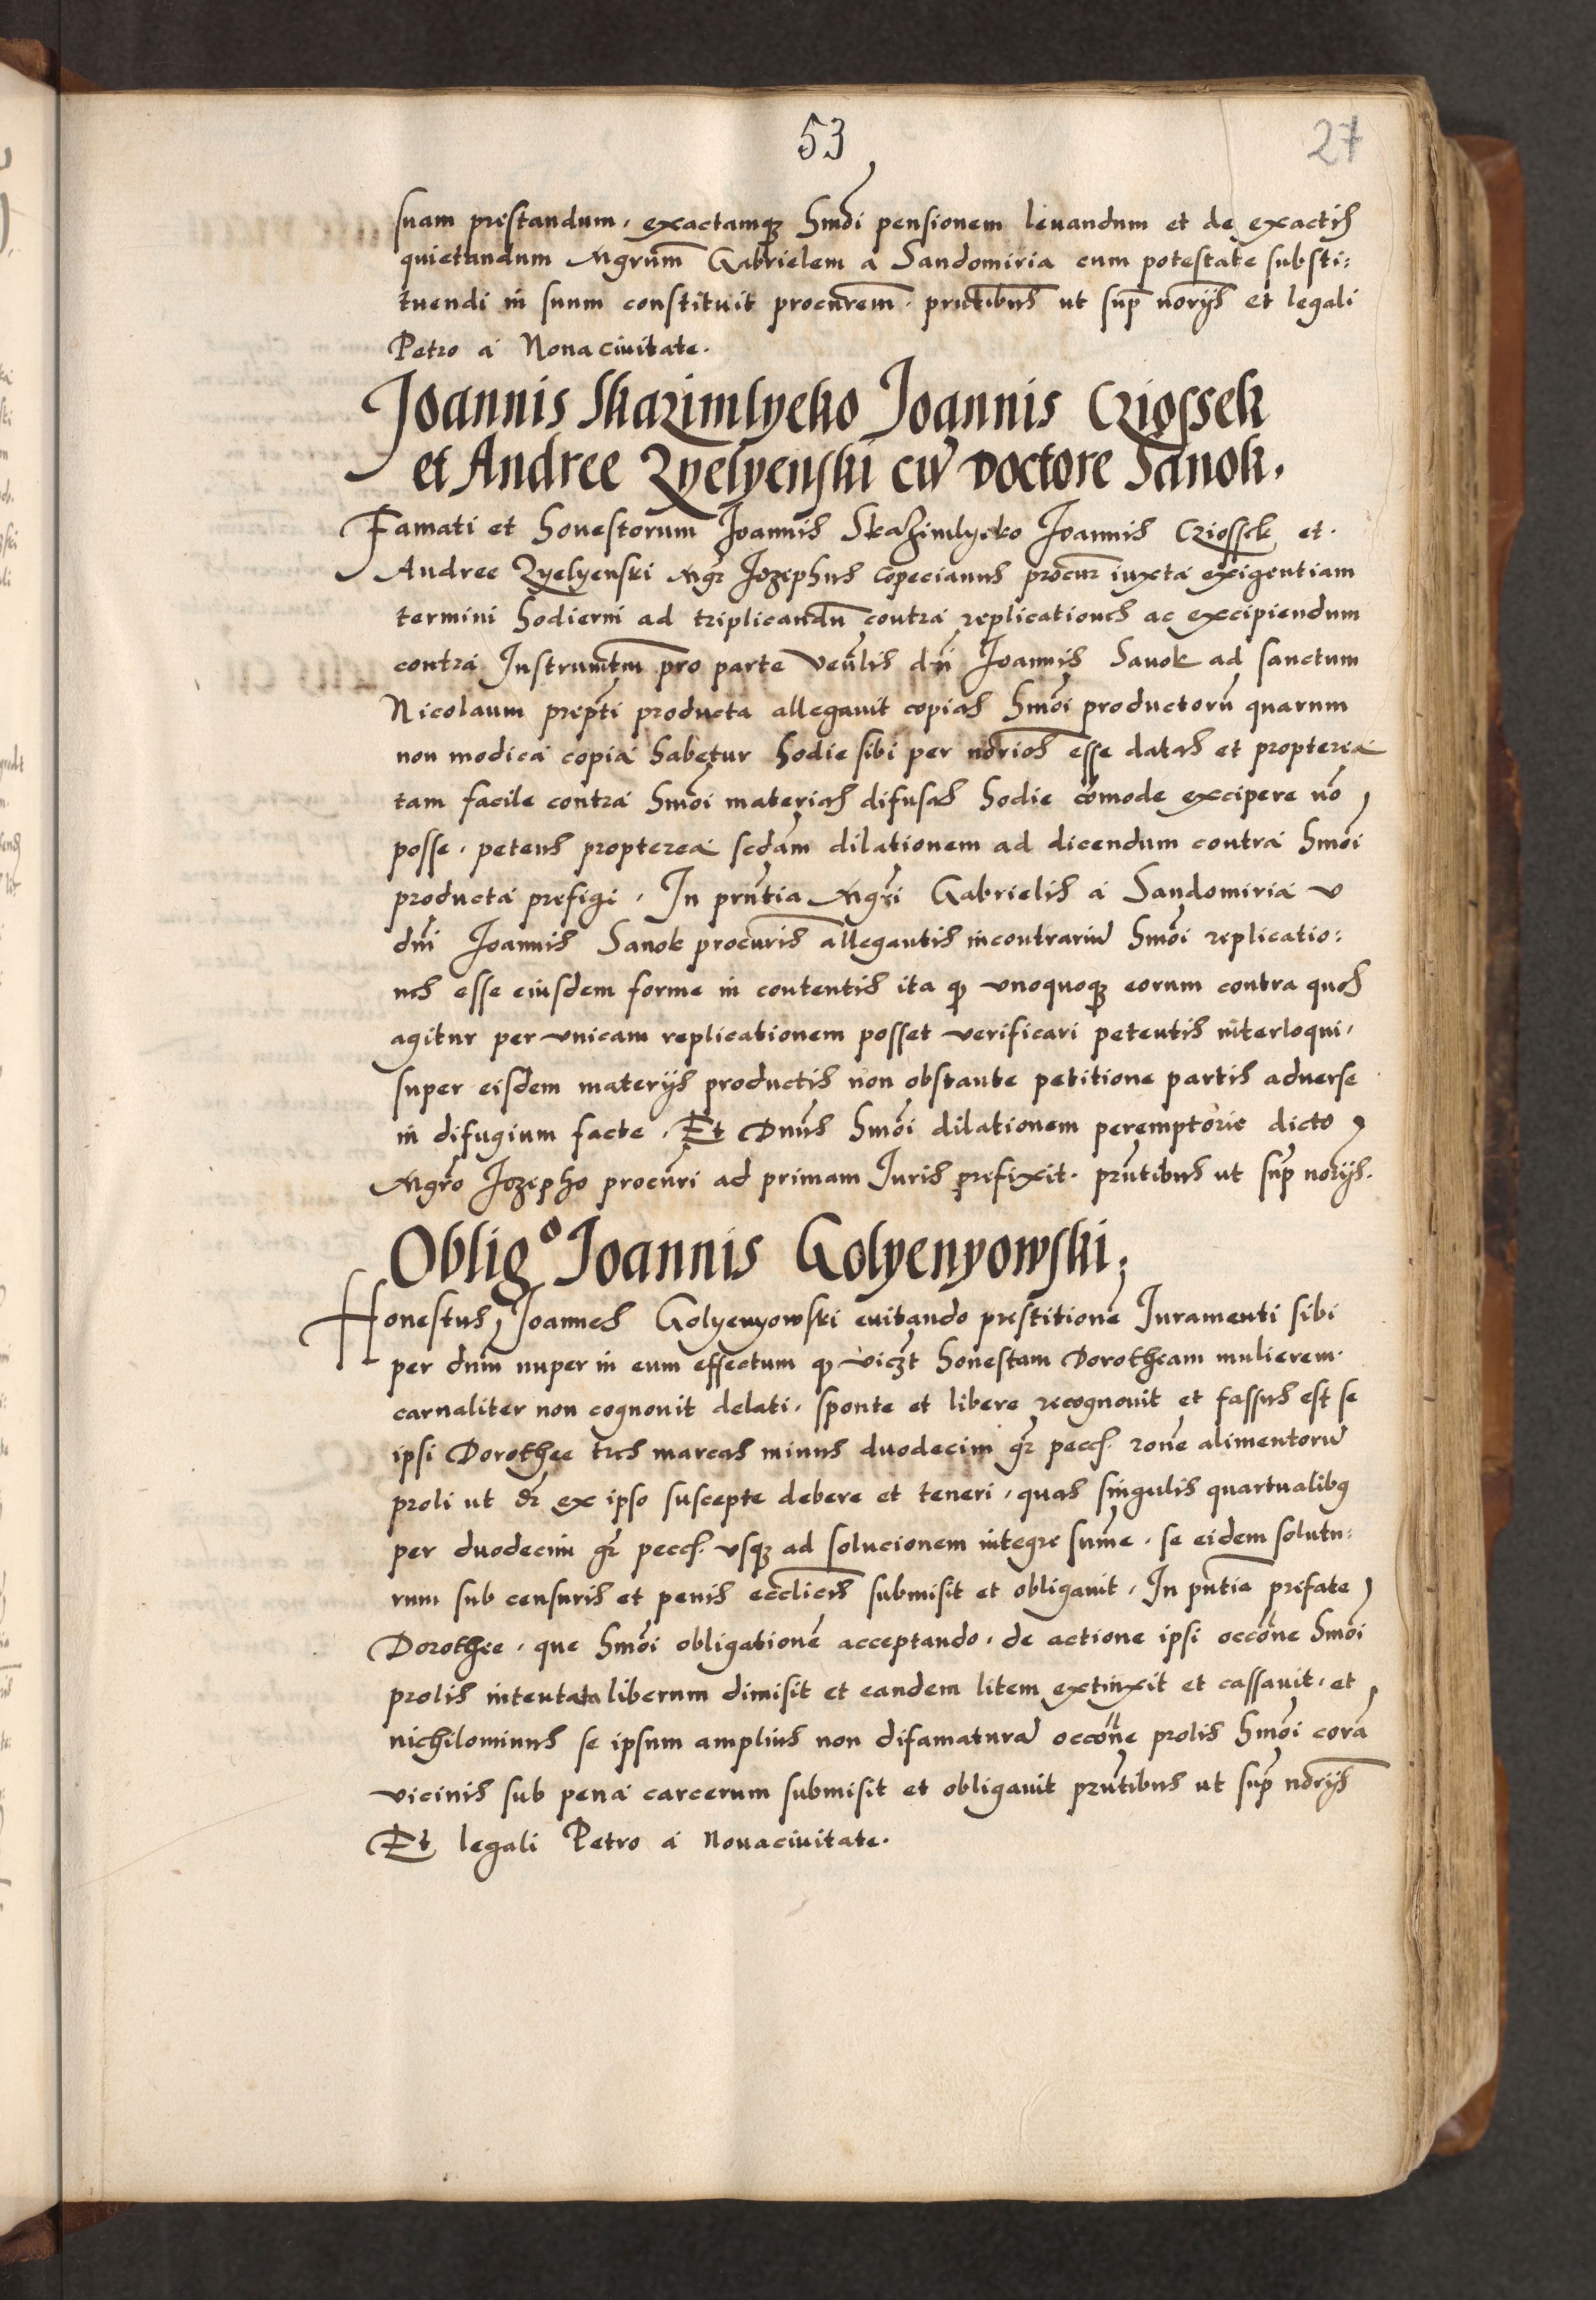 53
27
suam prestandum, exactamqȝ hmōi pensionem leuandum et de exactis
quietandum Mgrum̄ Gabrielem a Sandomiria cum potestate substi:
tuendi in suum constituit procurem̄. prn̄tibus ut sup̄ norijs et legali
Petro a Nouaciuitate.
Joannis Skazimlyeko Joannis Cziossek
et Andree Zyelyenski cū Doctore Sanok.
Famati et honestorum Joannis Skazimlyeko Joannis Cziossek et.
Andree Zyelyenski Mgr̄ Jozephus Copecianus procur̄ iuxta exigentiam
termini hodierni ad triplicandū contra replicationes ac excipiendum
contra Instrumtm̄ pro parte Venlis dn̄i Joannis Sanok ad sanctum
Nicolaum preptī producta allegauit copias hmōi productorū quarum
non modica copia habetur hodie sibi per norios esse datas et propterea
tam facile contra hmōi materias difusas hodie cōmode excipere nō
posse, petens propterea scdam̄ dilationem ad dicendum contra hmōi
producta prefigi, In prn̄tia Mgrī Gabrielis a Sandomiria v
dn̄i Joannis Sanok procuris̄ allegantis incontrariū hmōi replicatio:
nes esse eiusdem forme in contentis ita qͅ vnoquoqȝ eorum contra quos
agitur per vnicam replicationem posset verificari petentis interloqui,
super eisdem materijs productis non obstante petitione partis aduerse
in difugium facte, Et Dnūs hmōi dilationem peremptorie dicto
Mgrō Jozepho procuri̅ ad primam Juris prefixit. prn̄tibus ut sup̄ norijs.
Obligº Joannis Golyenyowski;
Honestus Joannes Golyenyowski euitando prestitionē Juramenti sibi
per dnm̄ nuper in eum effectum qͅ viczt̄ honestam Dorotheam mulierem.
carnaliter non cognouit delati, sponte et libere recognouit et fassus est se
ipsi Dorothee tres marcas minus duodecim gr̄ peccs. rone̅ alimentorū
proli ut dr̄ ex ipso suscepte debere et teneri, quas singulis quartualibꝰ
per duodecim gr̄ peccs. vsqȝ ad solucionem integre sum̄e, se eidem solutu:
rum sub censuris et penis ecclicis̄ submisit et obligauit, In pn̄tia prefate
Dorothee, que hmōi obligationē acceptando, de actione ipsi occōne hmōi
prolis intentata liberum dimisit et eandem litem extinxit et cassauit, et
nichilominus se ipsum amplius non difamaturā occōne prolis hmōi corā
vicinis sub pena carcerum submisit et obligauit prn̄tibus ut sup̄ norijs̄
Et legali Petro a Nouaciuitate.